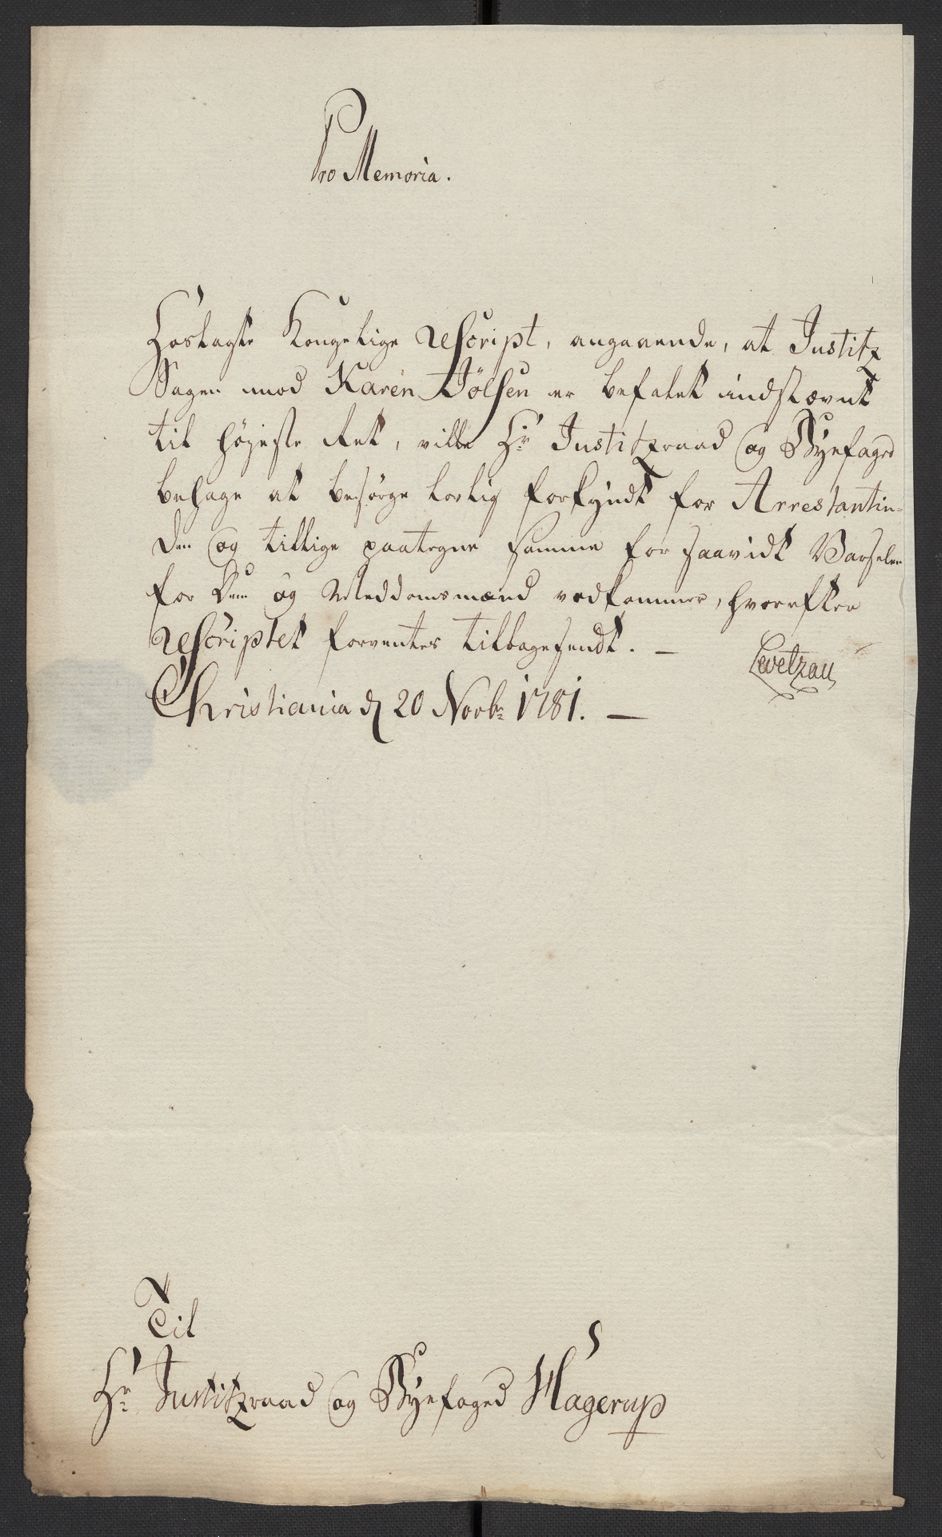 Pro Memoria.
Hoslagte Kongelige Rescript, angaaende, at Justitz
Sagen mod Karen Jölsen er befalet indstævnt
til høyeste Ret, ville Hr Justitzraad og Byefoged
behage at besørge lovlig forkyndt for Arrestantin-
den og tillige paategne samme for saavidt Varselen
for Dem og Meddomsmænd vedkommer, hvorefter
Rescriptet forventes tilbagesendt. —
Levetzau
Christiania d 20 Novbr 1781. —
Til
Hr Justitzraad og Byefoged Hagerup